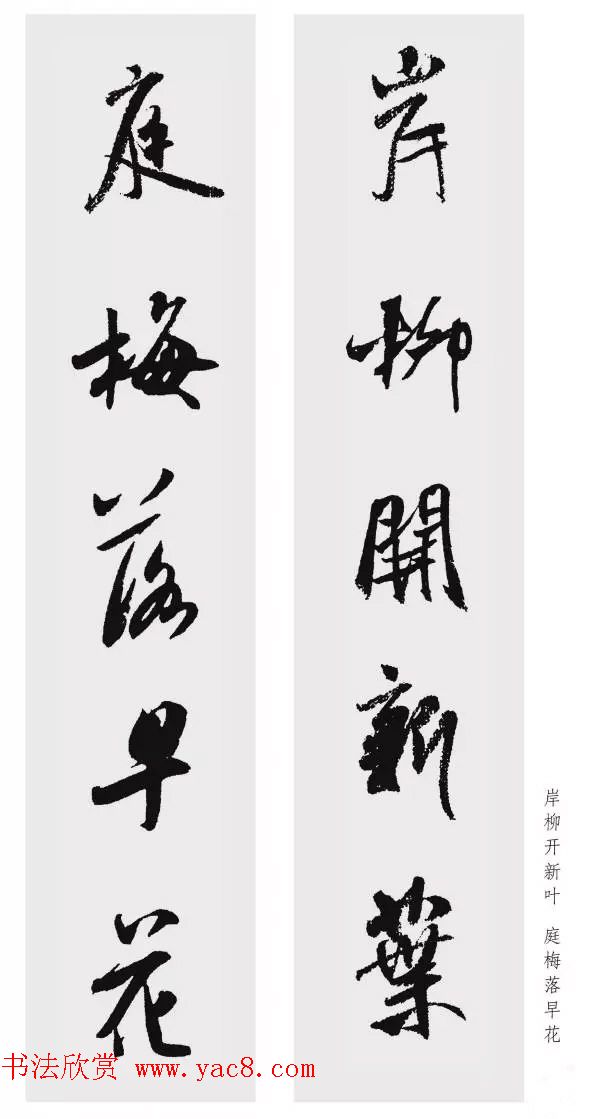 岸柳開新葉
庭梅落早花
岸柳开新叶 庭梅落早花
书法欣赏 www.yac8.com